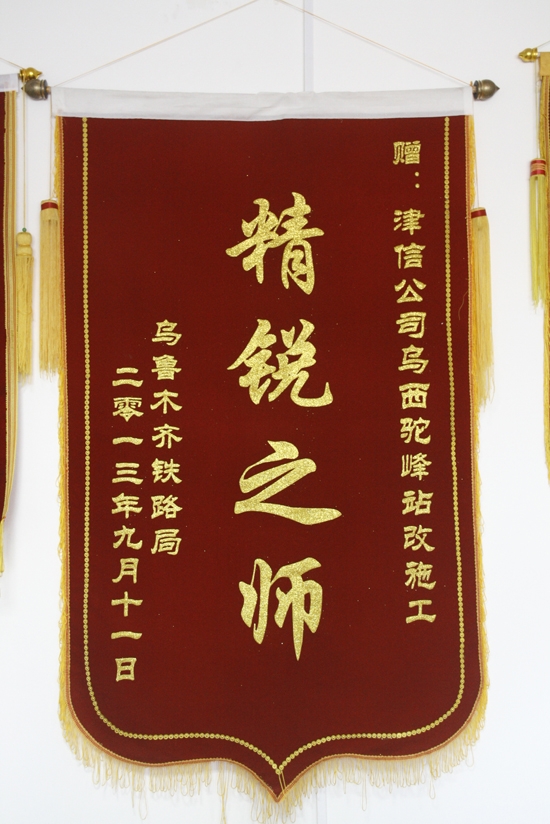 赠：津信公司乌西驼峰站改施工
精锐之师
乌鲁木齐铁路局
二零一三年九月十一日